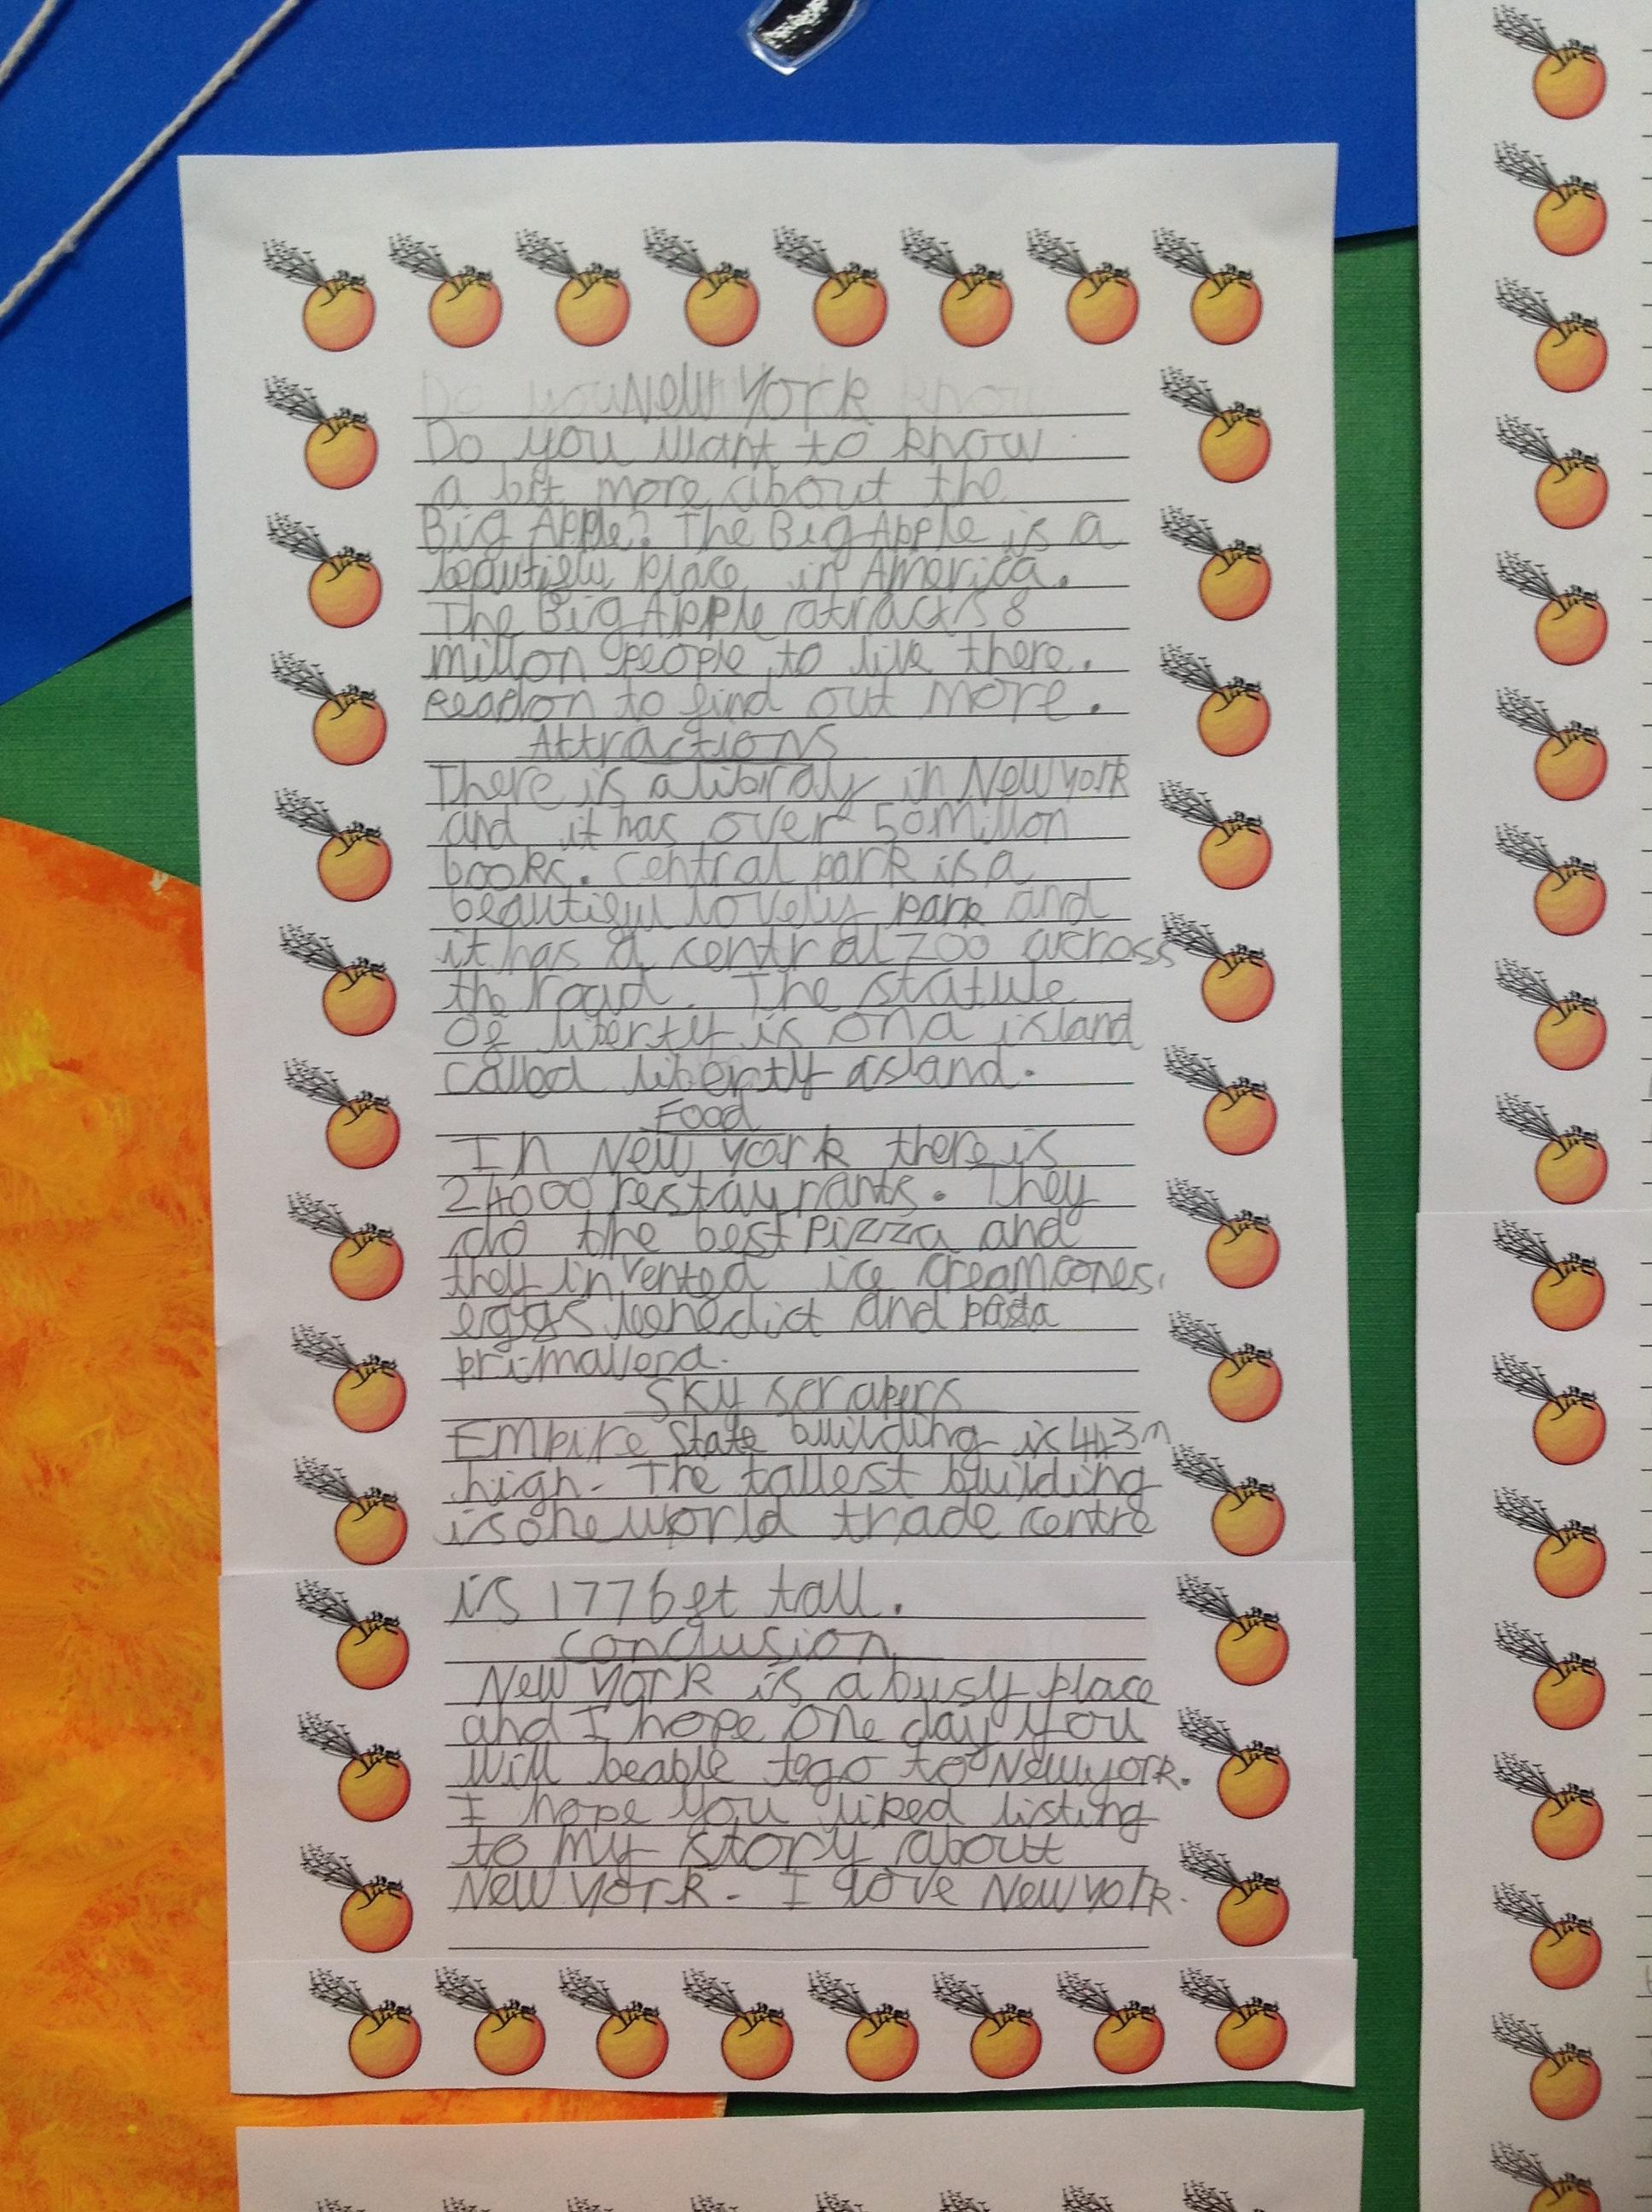 New York
Do you want to know
a bit more about the
Big Apple? The Big Apple is a
beautiful place in America.
The Big Apple atracts 8
millon people to live there.
Readon to find out more.
Attractions
There is a libray in New York
and it has over 50 millon
books. Central park is a
beautiful lovely park and
it has a central zoo across
the road. The statule
of liberty is on a island
called liberty island.
Food
In New York there is
24000 restaurants. They
do the best Pizza and
they invented ice cream cones,
eggs benedict and pasta
primavera.
Sky scrapers
Empire State building is 443m
high. The tallest building
is one world trade centre
is 1776ft tall.
conclusion
New York is a busy place
and I hope one day you
will beable to go to New york.
I hope you liked listing
to my story about
New York. I love New York.